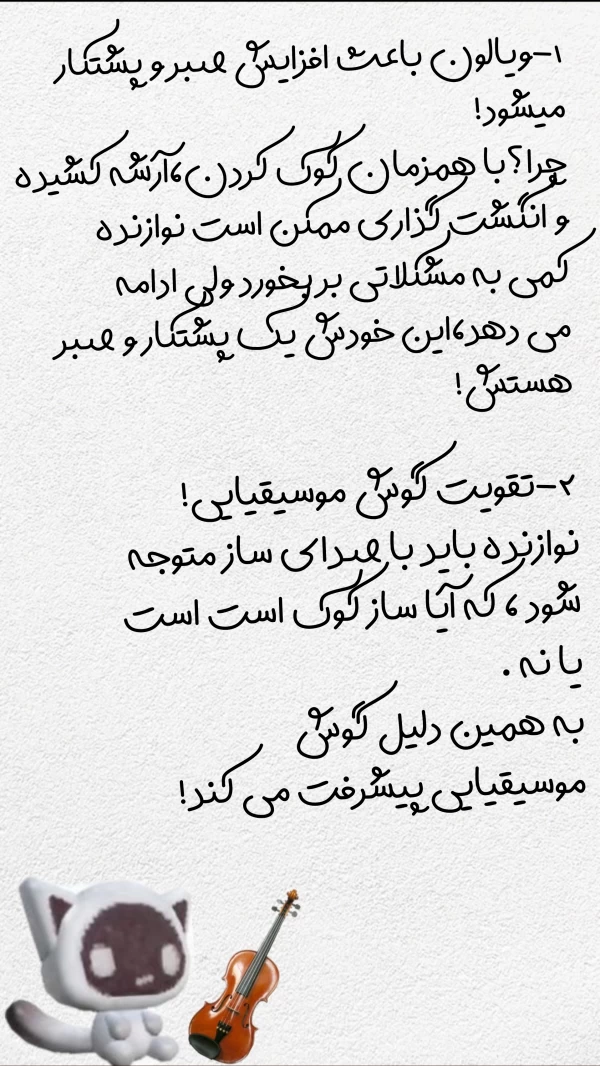 ۱-ویالون باعث افزایش صبر و پشتکار
میشود!
چرا؟با همزمان کوک کردن،آرشه کشیده
و انگشت گذاری ممکن است نوازنده
کمی به مشکلاتی بربخورد ولی ادامه
می دهد،این خودش یک پشتکار و صبر
هستش!
۲-تقویت گوش موسیقیایی!
نوازنده باید با صدای ساز متوجه
شود ، که آیا ساز کوک است است
یا نه .
به همین دلیل گوش
موسیقیایی پیشرفت می کند!